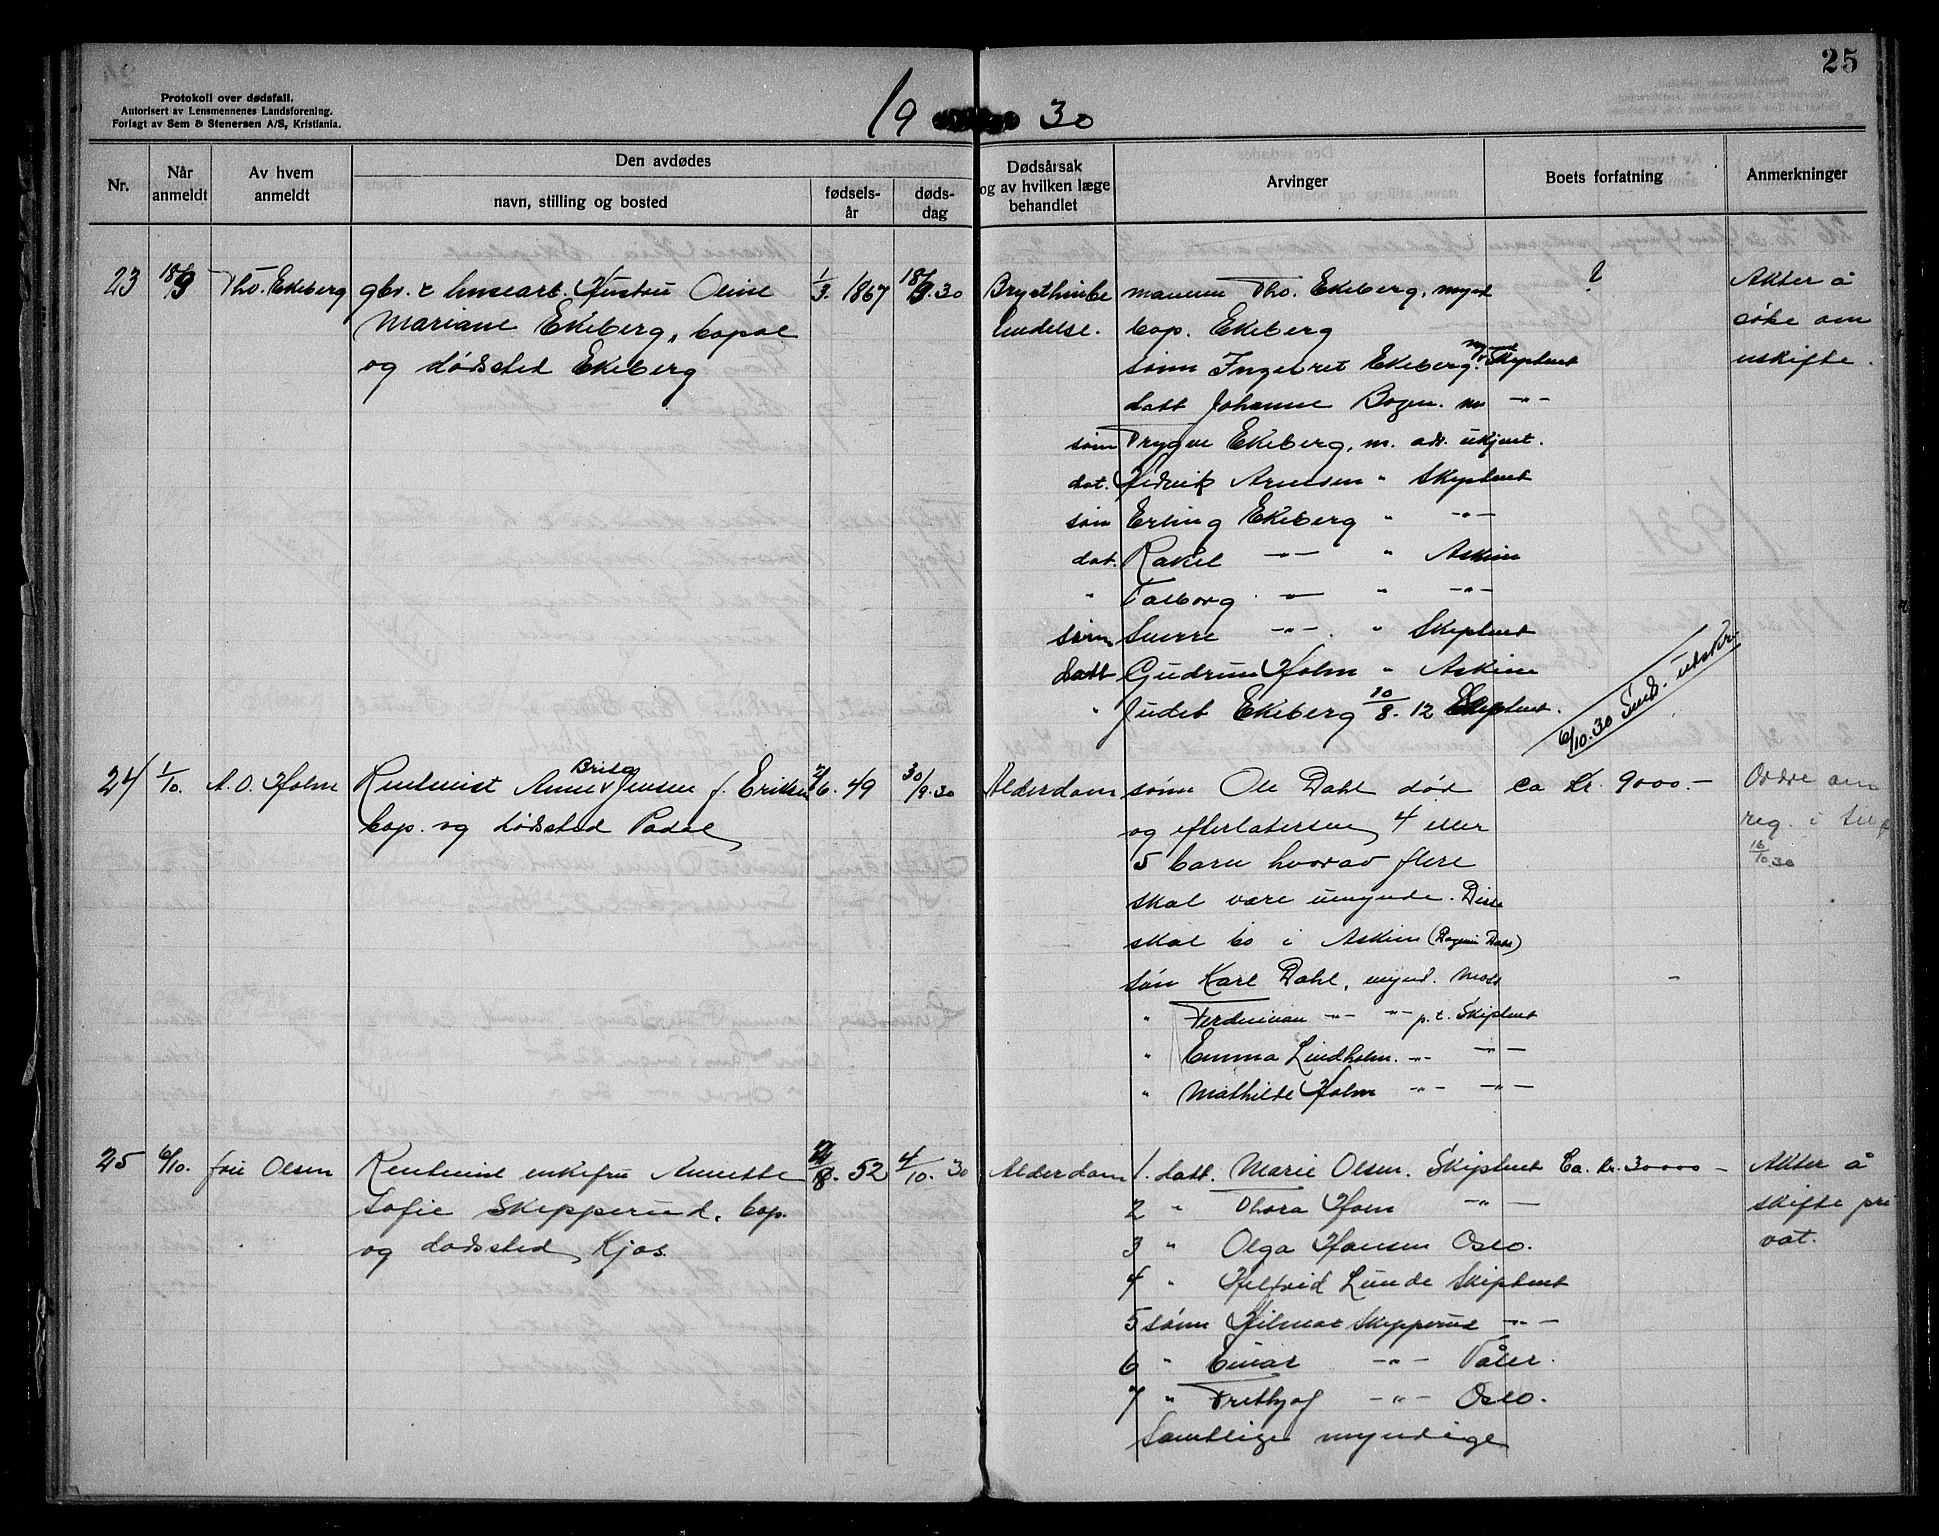 25
Protokoll over dødsfall.
Autorisert av Lensmennenes Landsforening.
Forlagt av Sem & Stenersen A/S, Kristiania.
19 30
Nr.
Når anmeldt
Av hvem anmeldt
Den avdødes
navn, stilling og bosted
fødsels-år
døds-dag
Dødsårsak og av hvilken læge behandlet
Arvinger
Boets forfatning
Anmerkninger
23 18/9 Tho. Ekeberg gbr. & huseart. Hustru Oline 1/3. 1867 18/9.30 Brysthinbe mannen Tho. Ekeberg, mynd ? Akter å
Mariane Ekeberg, bopæl tendelse. bop. Ekeberg søke om
og dødsted Ekeberg sønn Ingebret Ekeberg. mynd Skiptvet uskifte.
datt Johanne Bogen. m -"-
søn Trygve Ekeberg, m. adr. ukjent.
dat. Hedvik Arnesen " Skiptvet
søn Erling Ekeberg " -"-
dat. Rakel -"- " Askim
" Valborg -"- " -"-
sønn Sverre -"- " Skiptvet
Datt Gudrun Holm " Askim
" Judit Ekeberg 10/8. 12 Skiptvet.
6/10.30 Send. utskr.
24 1/10. A. O. Holm Rentenist Anne Brita Jensen f. Eriksen /6. 49 30/9.30 Alderdom sønn Ole Dahl død ca Kr. 9000.- Ordre om
bop. og dødsted Padal og efterlatersen 4 eller reg. i
5 barn hvorav flere 16/10.30
skal være umynde. Disse
skal bo i Askim (Dahl)
søn Karl Dahl, mynd. Moss -
" Ferdinan -"- -"- p.t. Skiptvet
" Emma Lindholm. -"- -"-
" Mathilde Holm -"- -"-
25 6/10. fru Olsen Rentenist enkefru Annette /8. 52 4/10. 30 Alderdom 1. datt. Marie Olsen. Skiptvet Ca. Kr. 30000 - Akter å
Sofie Skipperud, bop. 2 " Thora Holm -"- skifte pri
og dødsted Kjos. 3 " Olga Hansen Oslo. vat.
4 " Helfrid Lunde Skiptvet
5 sønn Hilmar Skipperud -"-
6 " Einar -"- Våler.
7 " Frithjof -"- Oslo.
Samtlige myndige